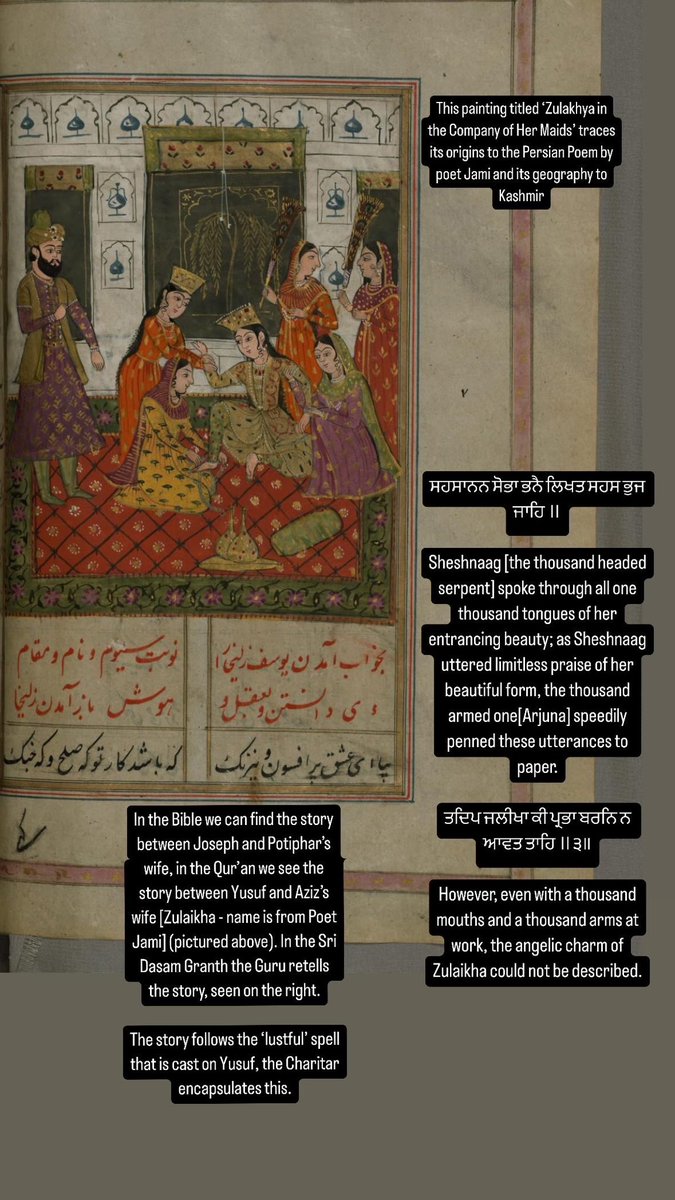 This painting titled ‘Zulakhya in
the Company of Her Maids’ traces
its origins to the Persian Poem by
poet Jami and its geography to
Kashmir
بخواب آمدن یوسف زلیخا را
نوبت سیوم و نام و مقام
وی دانستن و بعقل و
هوش باز آمدن زلیخا
بیا ای عشق پر افسون و نیرنک
که باشد کار تو که صلح و که جنک
ਸਹਸਾਨਨ ਸੋਭਾ ਭਨੈ ਲਿਖਤ ਸਹਸ ਭੁਜ
ਜਾਹਿ ॥
Sheshnaag [the thousand headed
serpent] spoke through all one
thousand tongues of her
entrancing beauty; as Sheshnaag
uttered limitless praise of her
beautiful form, the thousand
armed one[Arjuna] speedily
penned these utterances to
paper.
ਤਦਿਪ ਜਲੀਖਾ ਕੀ ਪ੍ਰਭਾ ਬਰਨਿ ਨ
ਆਵਤ ਤਾਹਿ ॥੩॥
However, even with a thousand
mouths and a thousand arms at
work, the angelic charm of
Zulaikha could not be described.
In the Bible we can find the story
between Joseph and Potiphar’s
wife, in the Qur’an we see the
story between Yusuf and Aziz’s
wife [Zulaikha - name is from Poet
Jami] (pictured above). In the Sri
Dasam Granth the Guru retells
the story, seen on the right.
The story follows the ‘lustful’ spell
that is cast on Yusuf, the Charitar
encapsulates this.